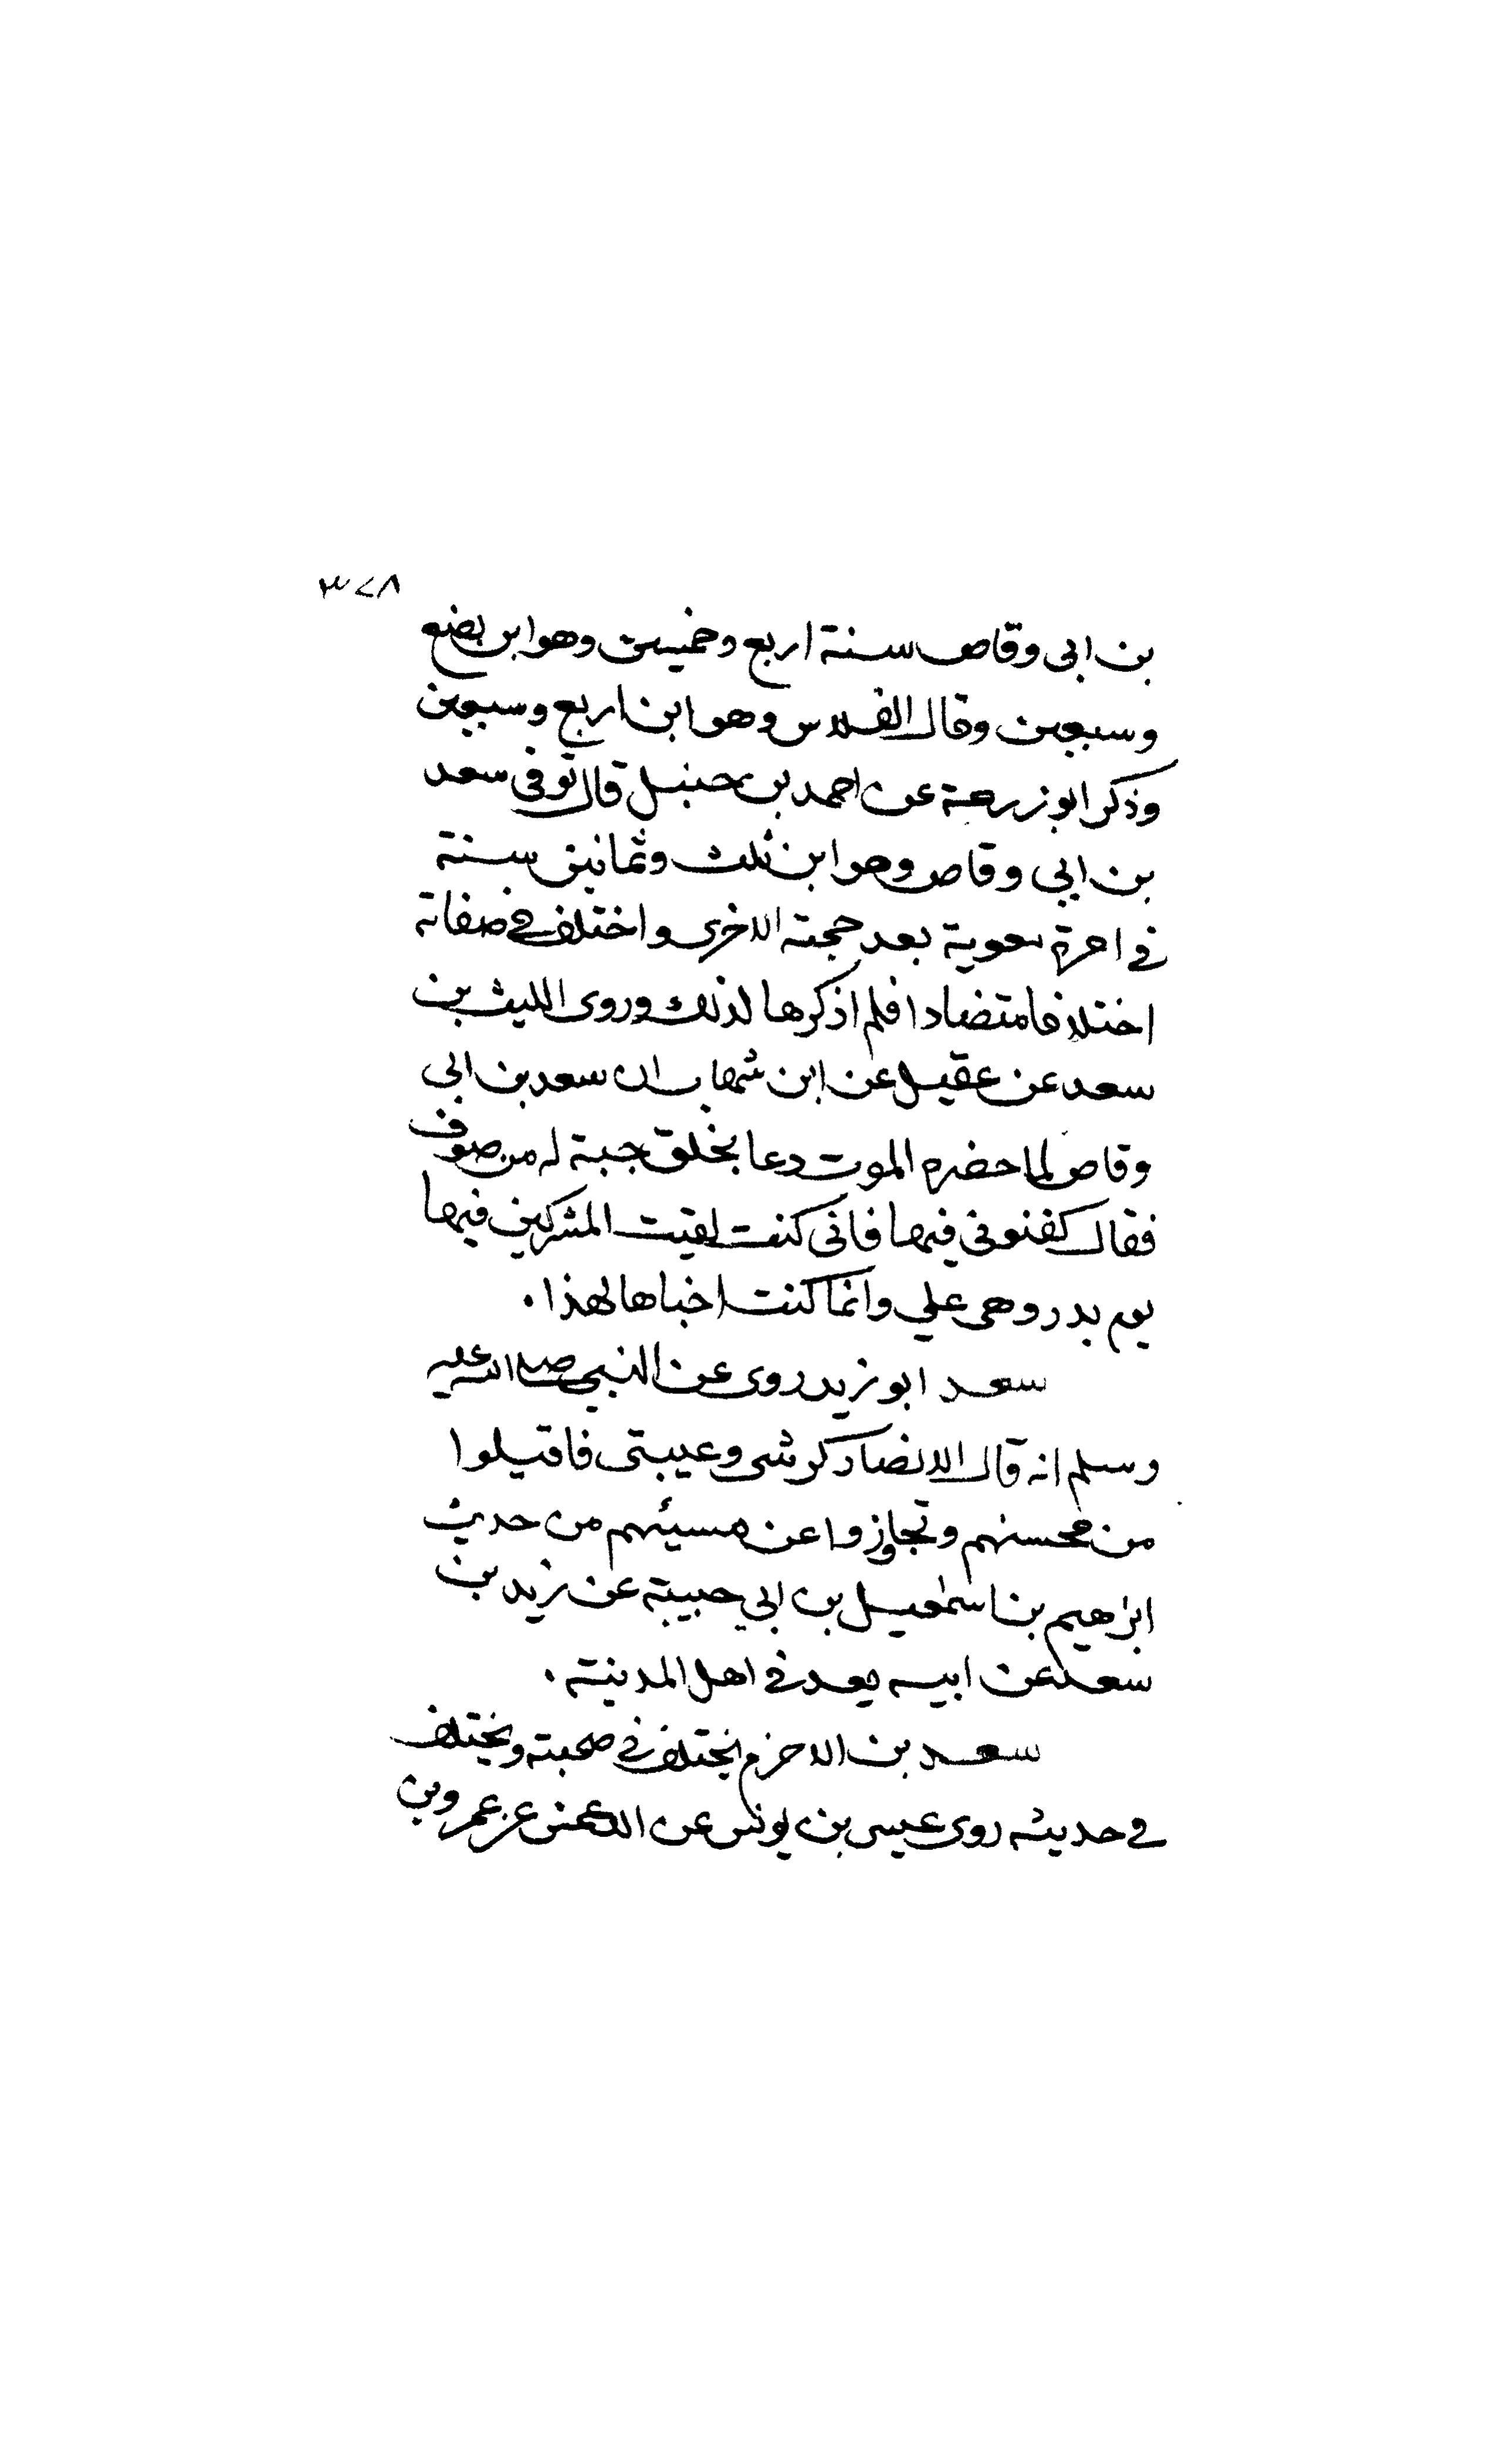 ٣٧٨
بن ابى وقاص سنة اربع وخمسين وهو ابن بضع
وسبعين وقال الفلاس وهو ابن اربع وسبعين
وذكر ابو زرعة عن احمد بن حنبل قال توفى سعد
بن ابي وقاص وهو ابن ثلث وثمانين سنة
في امرة معوية بعد حجته الاخرى واختلف في صفاته
اختلافا متضادا فلم اذكرها لذلك وروى الليث بن
سعد عن عقيل عن ابن شهاب ان سعد بن ابى
وقاص لما حضره الموت دعا بخلق جبة له من صوف
فقال كفنونى فيها فانى كنت لقيت المشركين فيها
يوم بدر وهى علي وانما كنت اخباها لهذا.
سعد ابو زيد روى عن النبي صلى الله عليه
وسلم انه قال الانصار كرشى وعيبتى فاقبلوا
من محسنهم وتجاوزوا عن مسيئهم من حديث
ابرهيم بن اسمعيل بن ابي حبيبة عن زيد بن
سعد عن ابيه يعد في اهل المدينة.
سعد بن الاخرم يختلف في صحبته ويختلف
في حديثه روى عيسى بن يونس عن الاعمش عن عمرو بن